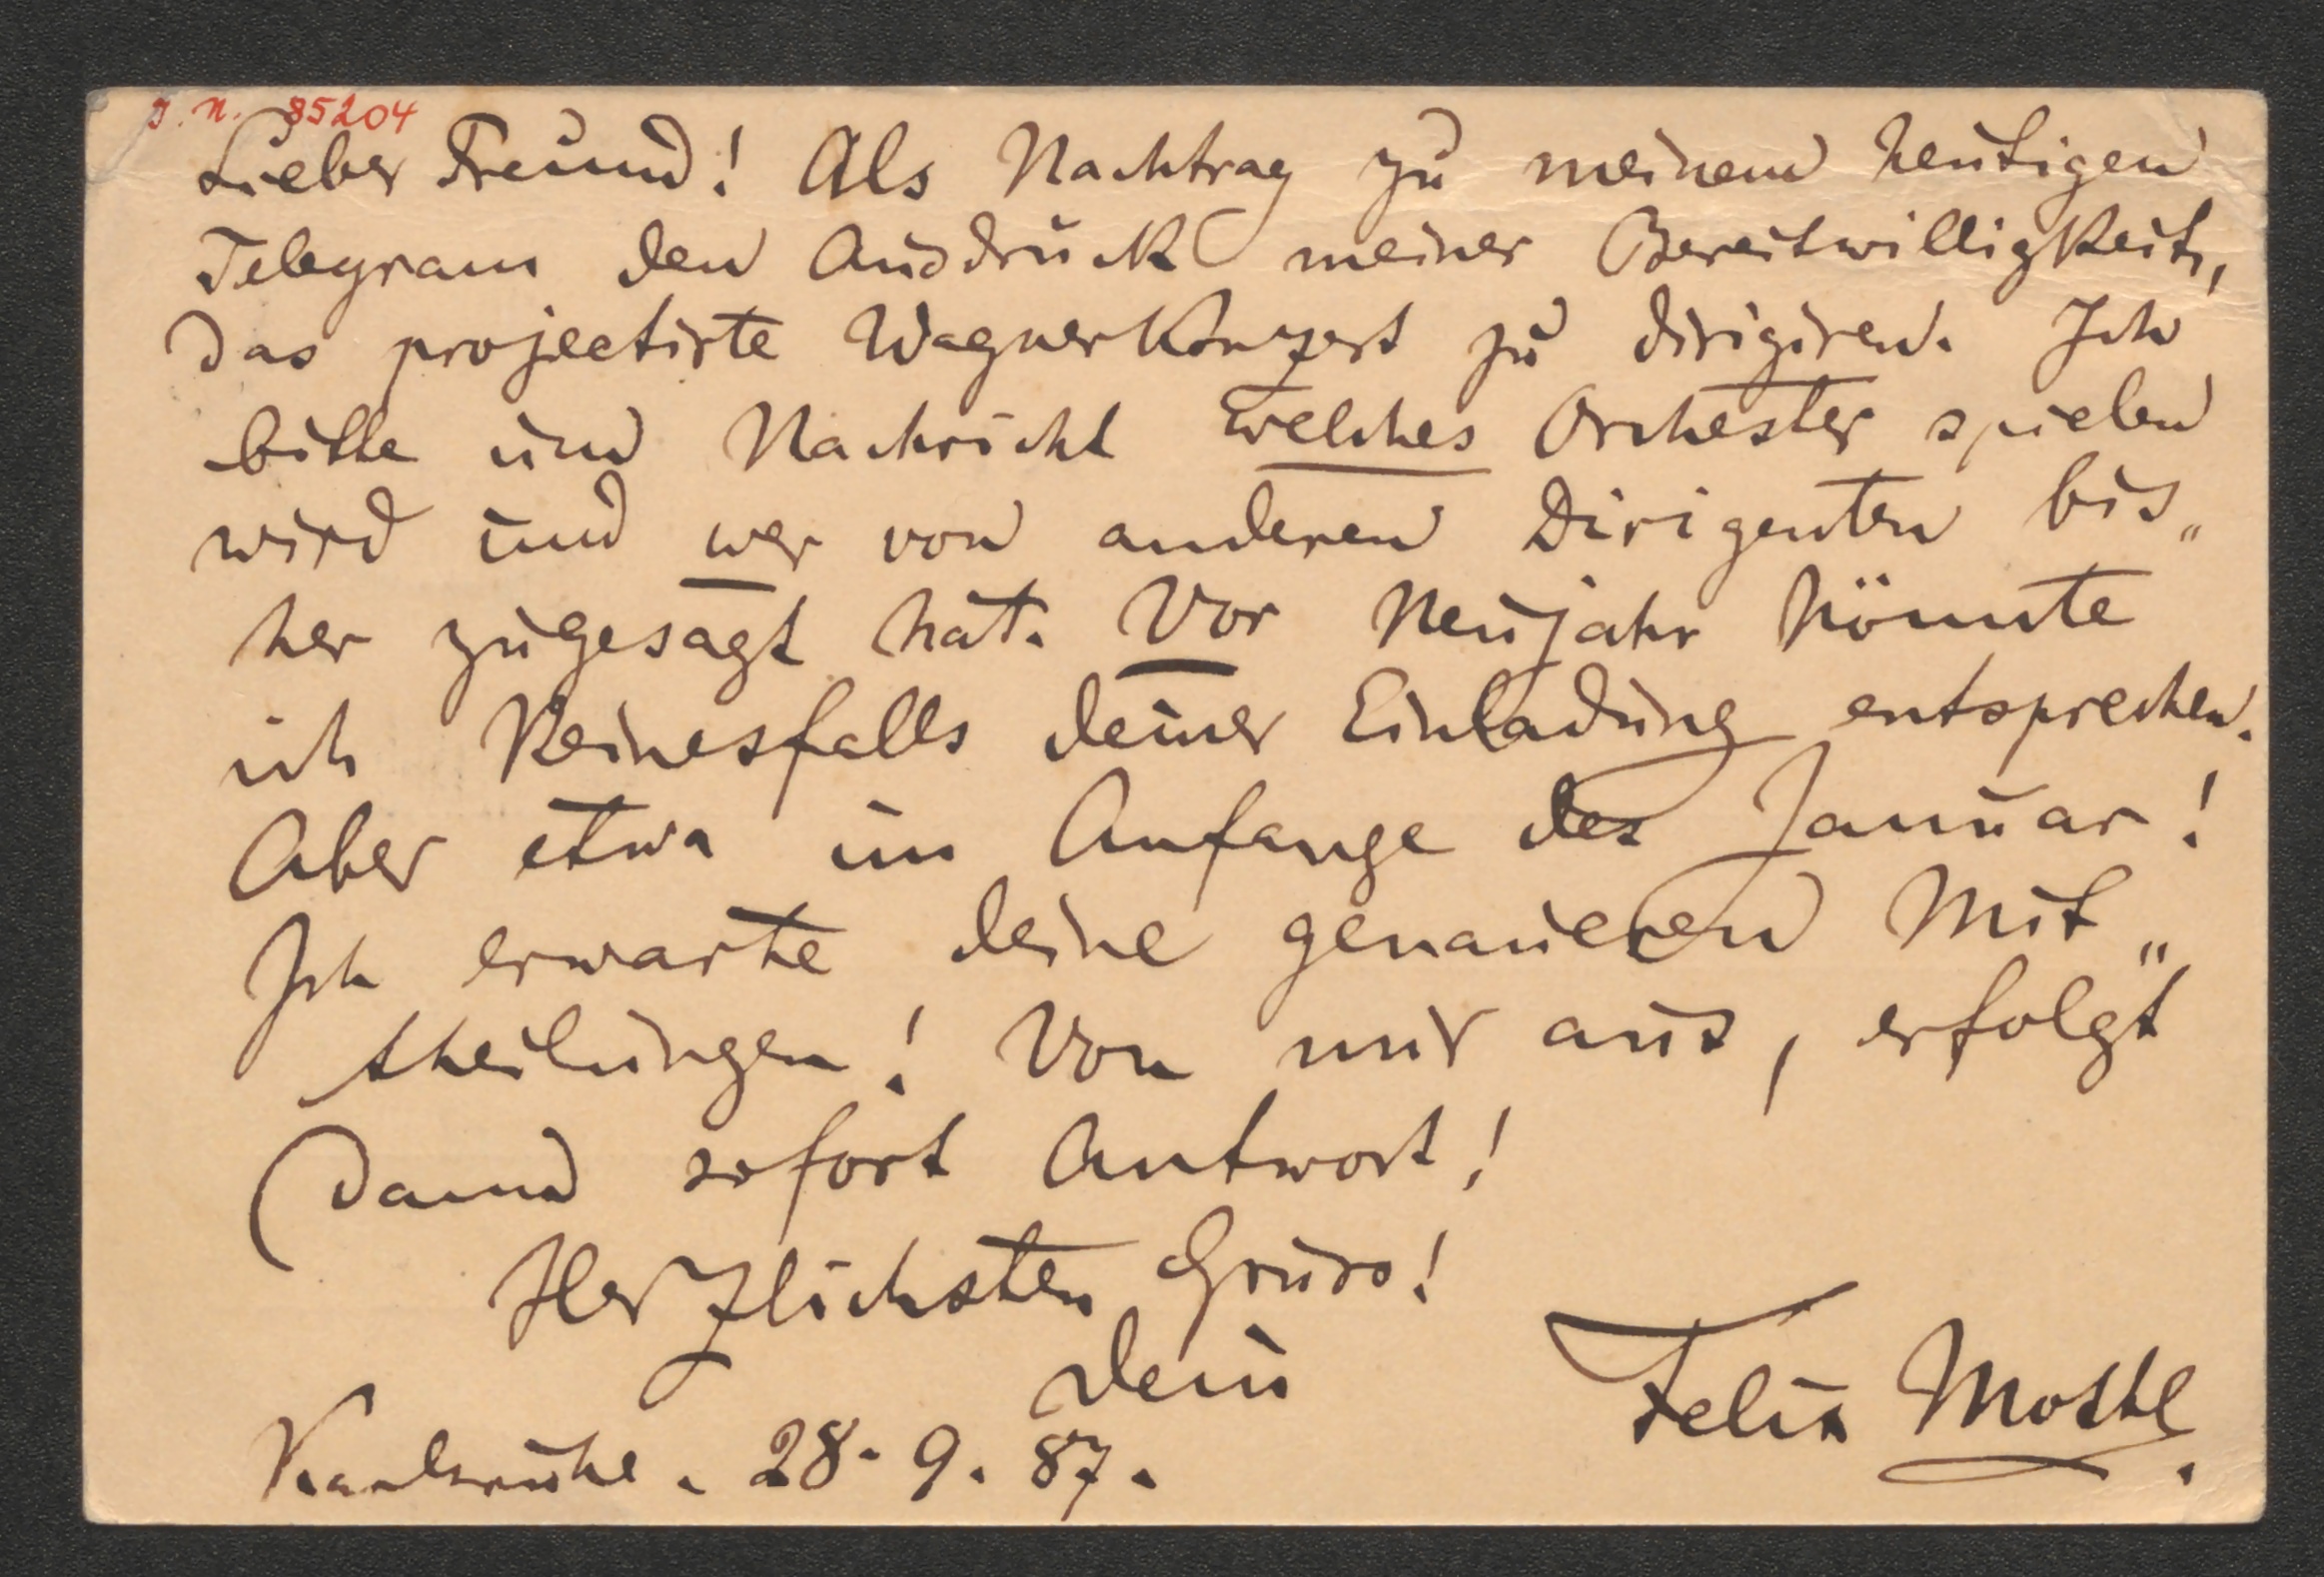 J. N. 85204
Lieber Freund! Als Nachtrag zu meinem heutigen
Telegram den Ausdruck meiner Bereitwilligkeit,
das projectirte Wagnerkonzert zu dirigiren. Ich
bitte um Nachricht welches Orchester spielen
wird und wer von anderen Dirigenten bis„
her zugesagt hat. Vor Neujahr könnte
ich keinesfalls deiner Einladung entsprechen.
Aber etwa im Anfange des Januar!
Ich erwarte deine genaueren Mit„
theilungen! Von mir aus, erfolgt
dann sofort Antwort!
Herzlichsten Gruss!
Dein
Felix Mottl.
Karlsruhe. 28. 9. 87.